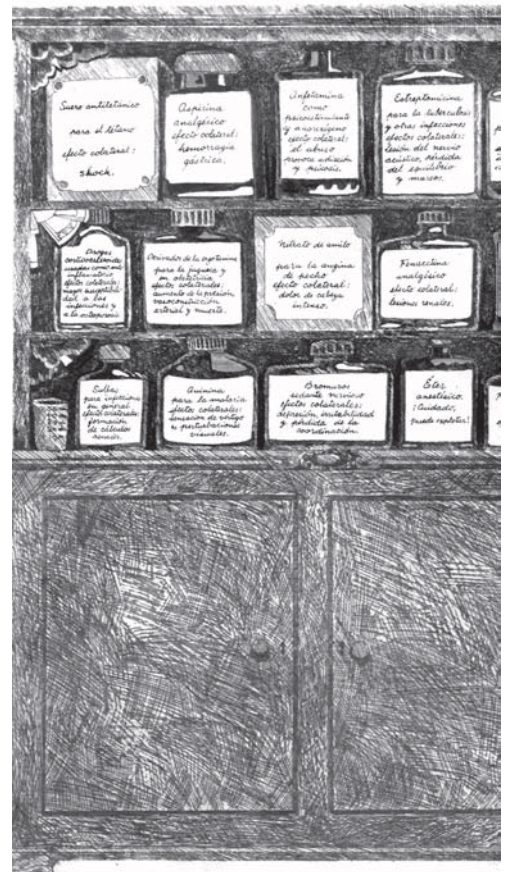 Suero antitetánico
para el tétano
efecto colateral:
shock.
Aspirina
analgésico
efecto colateral:
hemorragia
gástrica.
Anfetamina
como
psicoestimulante
y anorexígeno
efecto colateral:
el abuso
provoca adicción
y psicosis.
Estreptomicina
para la tuberculosis
y otras infecciones
efectos colaterales:
lesión del nervio
acústico, pérdida
del equilibrio
y mareos.
Drogas
corticosteroides
usadas como anti
inflamatorio
efectos colaterales:
mayor susceptibili
dad a las
infecciones y
a la osteoporosis
Derivados de la ergotamina
para la jaqueca y
en obstetricia
efectos colaterales:
aumento de la presión,
vasoconstricción
arterial y muerte.
Nitrato de amilo
para la angina
de pecho
efecto colateral:
dolor de cabeza
intenso.
Fenacetina
analgésico
efecto colateral:
lesiones renales.
Sulfas
para infecciones
en general
efecto colateral:
formación
de cálculos
renales.
Quinina
para la malaria
efectos colaterales:
sensación de vértigo
y perturbaciones
visuales.
Bromuros
sedante nervioso
efectos colaterales:
depresión, irritabilidad
y pérdida de la
coordinación.
Éter
anestésico.
¡Cuidado,
puede explotar!